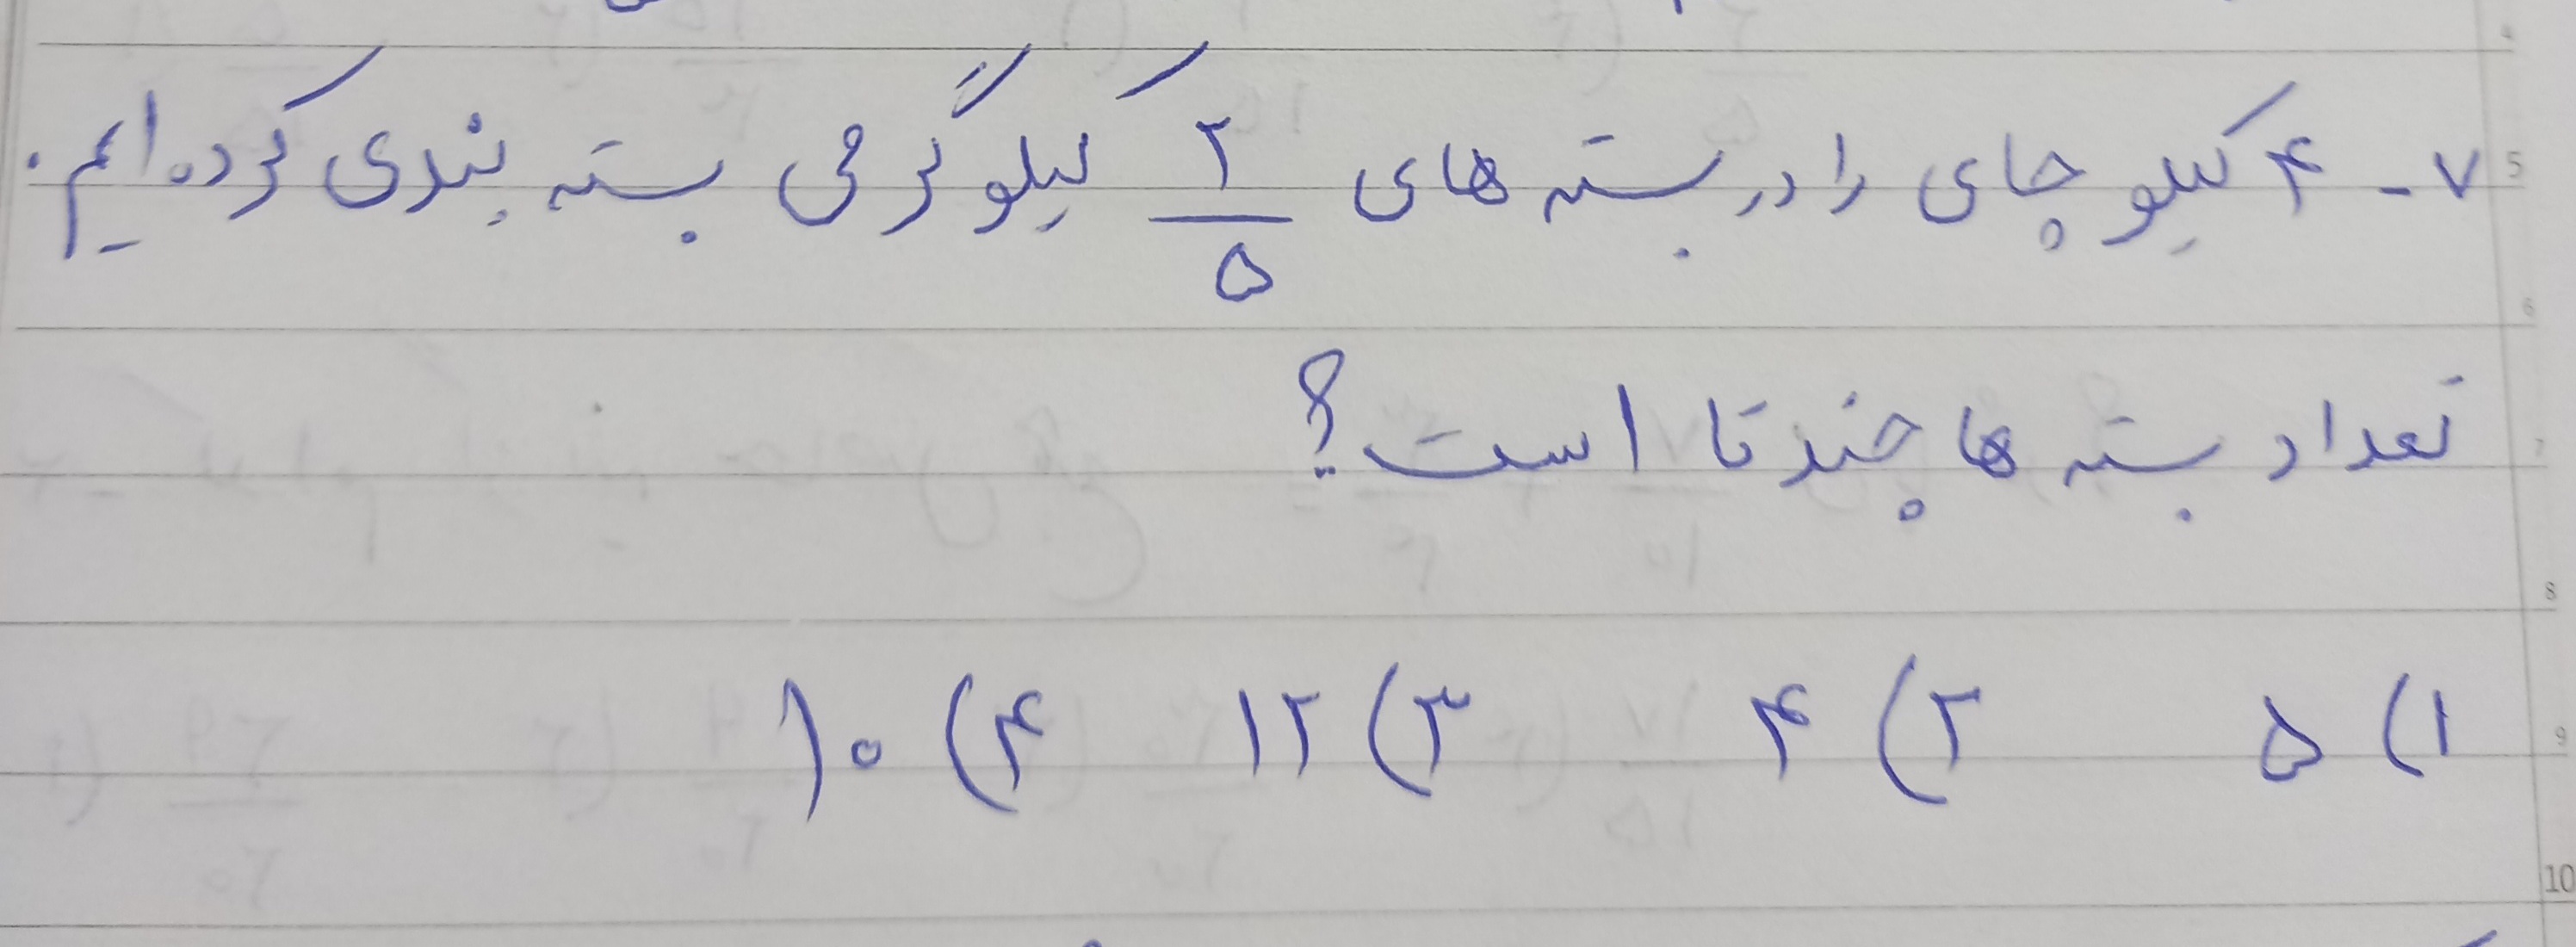 ۷- ۴ کیلو چای را در بسته های ۲/۵ کیلوگرمی بسته بندی کرده ایم.
تعداد بسته ها چند تا است؟
۱) ۵ ۲) ۴ ۳) ۱۲ ۴) ۱۰